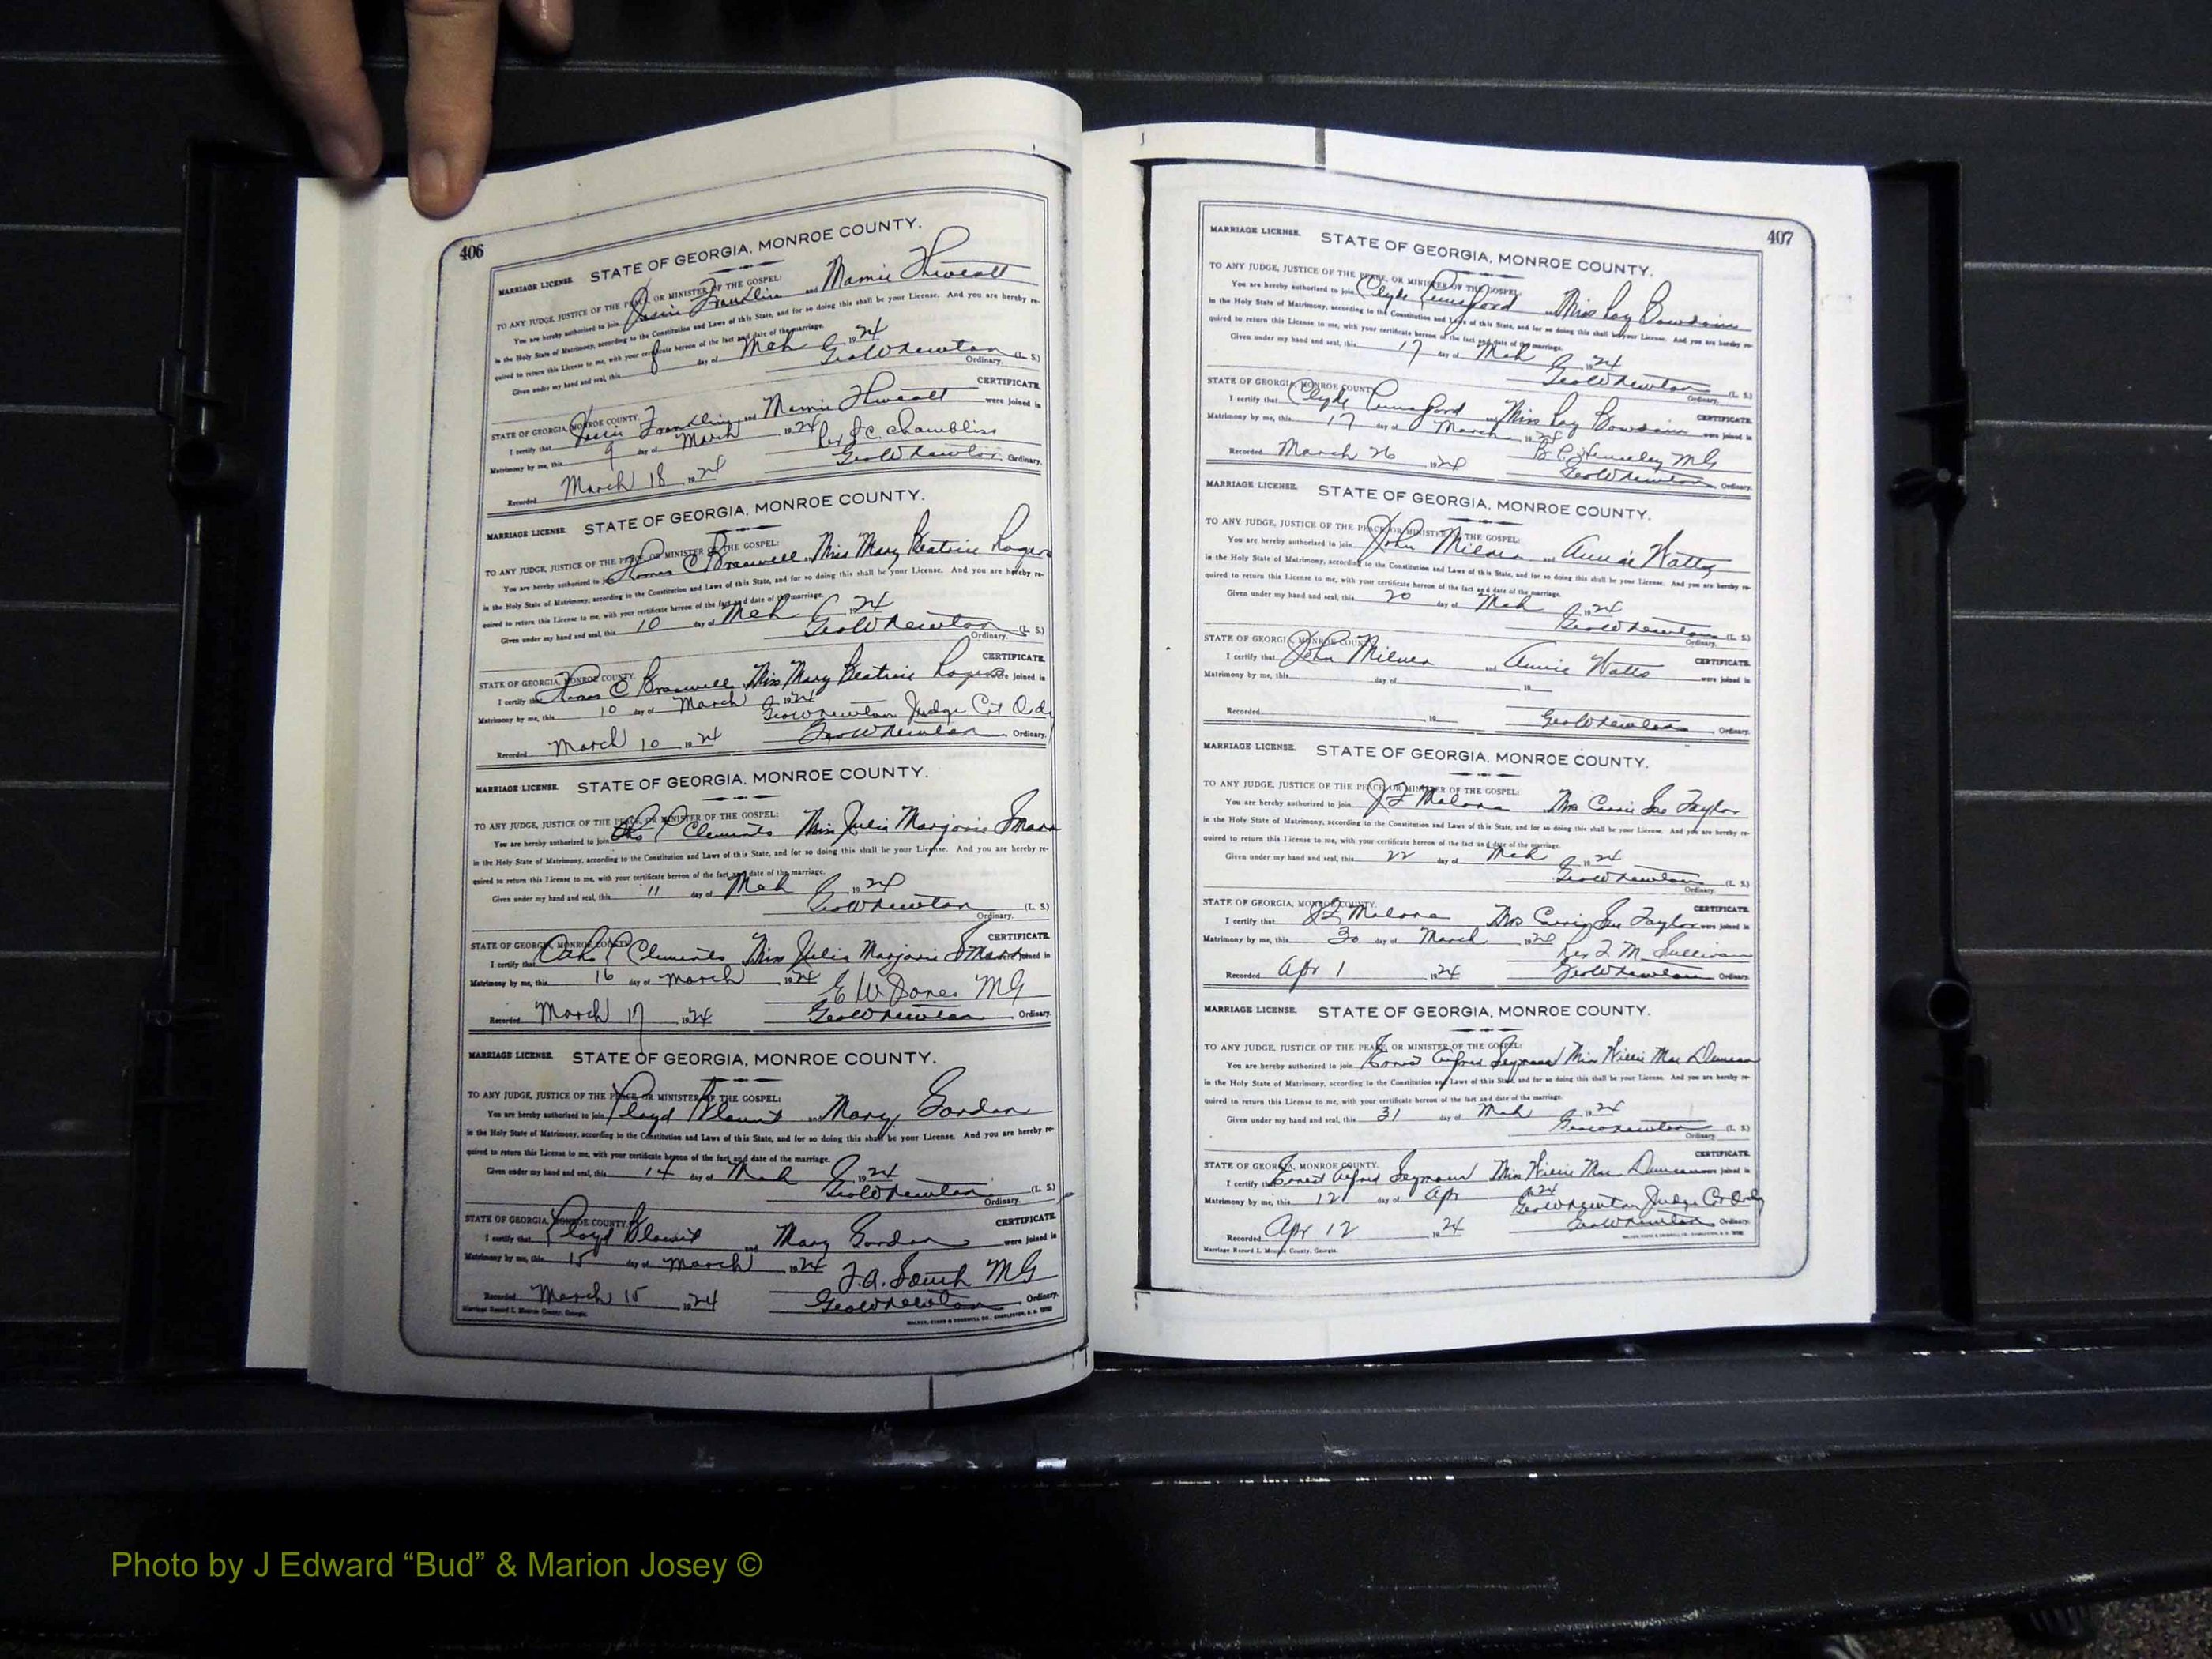 406
MARRIAGE LICENSE. STATE OF GEORGIA, MONROE COUNTY.
TO ANY JUDGE, JUSTICE OF THE PEACE, OR MINISTER OF THE GOSPEL:
You are hereby authorized to join Jessie Franklin and Mamie Thweatt
in the Holy State of Matrimony, according to the Constitution and Laws of this State, and for so doing this shall be your License. And you are hereby re-
quired to return this License to me, with your certificate hereon of the fact and date of the marriage.
Given under my hand and seal, this 8 day of Mch 1924
Geo W Newton (L. S.)
Ordinary.
STATE OF GEORGIA, MONROE COUNTY. CERTIFICATE.
I certify that Jessie Franklin and Mamie Thweatt were joined in
Matrimony by me, this 9 day of March 1924 Rev J C. Chambliss
Recorded March 18 1924 Geo W Newton Ordinary.
MARRIAGE LICENSE. STATE OF GEORGIA, MONROE COUNTY.
TO ANY JUDGE, JUSTICE OF THE PEACE, OR MINISTER OF THE GOSPEL:
You are hereby authorized to join C Braswell Miss Mary Beatrice Rogers
in the Holy State of Matrimony, according to the Constitution and Laws of this State, and for so doing this shall be your License. And you are hereby re-
quired to return this License to me, with your certificate hereon of the fact and date of the marriage.
Given under my hand and seal, this 10 day of Mch 1924
Geo W Newton (L. S.)
Ordinary.
STATE OF GEORGIA, MONROE COUNTY. CERTIFICATE.
I certify that C Braswell Miss Mary Beatrice Rogers were joined in
Matrimony by me, this 10 day of March 1924 Geo W Newton Judge Crt Ord
Recorded March 10 1924 Geo W Newton Ordinary.
MARRIAGE LICENSE. STATE OF GEORGIA, MONROE COUNTY.
TO ANY JUDGE, JUSTICE OF THE PEACE, OR MINISTER OF THE GOSPEL:
You are hereby authorized to join Clements Miss Julia Marjorie
in the Holy State of Matrimony, according to the Constitution and Laws of this State, and for so doing this shall be your License. And you are hereby re-
quired to return this License to me, with your certificate hereon of the fact and date of the marriage.
Given under my hand and seal, this 11 day of Mch 1924
Geo W Newton (L. S.)
Ordinary.
STATE OF GEORGIA, MONROE COUNTY. CERTIFICATE.
I certify that Clements Miss Julia Marjorie were joined in
Matrimony by me, this 16 day of March 1924 E W Jones MG
Recorded March 17 1924 Geo W Newton Ordinary.
MARRIAGE LICENSE. STATE OF GEORGIA, MONROE COUNTY.
TO ANY JUDGE, JUSTICE OF THE PEACE, OR MINISTER OF THE GOSPEL:
You are hereby authorized to join Floyd Blount and Mary Gordon
in the Holy State of Matrimony, according to the Constitution and Laws of this State, and for so doing this shall be your License. And you are hereby re-
quired to return this License to me, with your certificate hereon of the fact and date of the marriage.
Given under my hand and seal, this 14 day of Mch 1924
Geo W Newton (L. S.)
Ordinary.
STATE OF GEORGIA, MONROE COUNTY. CERTIFICATE.
I certify that Floyd Blount and Mary Gordon were joined in
Matrimony by me, this 15 day of March 1924 MG
Recorded March 15 1924 Geo W Newton Ordinary.
Marriage Record I, Monroe County, Georgia. WALKER, EVANS & COGSWELL CO., CHARLESTON, S. C.
407
MARRIAGE LICENSE. STATE OF GEORGIA, MONROE COUNTY.
TO ANY JUDGE, JUSTICE OF THE PEACE, OR MINISTER OF THE GOSPEL:
You are hereby authorized to join Clyde Lunsford and Miss Loy
in the Holy State of Matrimony, according to the Constitution and Laws of this State, and for so doing this shall be your License. And you are hereby re-
quired to return this License to me, with your certificate hereon of the fact and date of the marriage.
Given under my hand and seal, this 17 day of Mch 1924
Geo W Newton (L. S.)
Ordinary.
STATE OF GEORGIA, MONROE COUNTY. CERTIFICATE.
I certify that Clyde Lunsford and Miss Loy were joined in
Matrimony by me, this 17 day of March 1924 MG
Recorded March 26 1924 Geo W Newton Ordinary.
MARRIAGE LICENSE. STATE OF GEORGIA, MONROE COUNTY.
TO ANY JUDGE, JUSTICE OF THE PEACE, OR MINISTER OF THE GOSPEL:
You are hereby authorized to join John Milner and Annie Watts
in the Holy State of Matrimony, according to the Constitution and Laws of this State, and for so doing this shall be your License. And you are hereby re-
quired to return this License to me, with your certificate hereon of the fact and date of the marriage.
Given under my hand and seal, this 20 day of Mch 1924
Geo W Newton (L. S.)
Ordinary.
STATE OF GEORGIA, MONROE COUNTY. CERTIFICATE.
I certify that John Milner and Annie Watts were joined in
Matrimony by me, this day of 19
Recorded 19 Geo W Newton Ordinary.
MARRIAGE LICENSE. STATE OF GEORGIA, MONROE COUNTY.
TO ANY JUDGE, JUSTICE OF THE PEACE, OR MINISTER OF THE GOSPEL:
You are hereby authorized to join J F Malone Mrs Carrie Sue Taylor
in the Holy State of Matrimony, according to the Constitution and Laws of this State, and for so doing this shall be your License. And you are hereby re-
quired to return this License to me, with your certificate hereon of the fact and date of the marriage.
Given under my hand and seal, this 22 day of Mch 1924
Geo W Newton (L. S.)
Ordinary.
STATE OF GEORGIA, MONROE COUNTY. CERTIFICATE.
I certify that J F Malone Mrs Carrie Sue Taylor were joined in
Matrimony by me, this 30 day of March 1924 Rev M. Sullivan
Recorded Apr 1 1924 Geo W Newton Ordinary.
MARRIAGE LICENSE. STATE OF GEORGIA, MONROE COUNTY.
TO ANY JUDGE, JUSTICE OF THE PEACE, OR MINISTER OF THE GOSPEL:
You are hereby authorized to join Ernest Alfred Seymour Miss Willie Mae Duncan
in the Holy State of Matrimony, according to the Constitution and Laws of this State, and for so doing this shall be your License. And you are hereby re-
quired to return this License to me, with your certificate hereon of the fact and date of the marriage.
Given under my hand and seal, this 31 day of Mch 1924
Geo W Newton (L. S.)
Ordinary.
STATE OF GEORGIA, MONROE COUNTY. CERTIFICATE.
I certify that Ernest Alfred Seymour Miss Willie Mae Duncan were joined in
Matrimony by me, this 12 day of Apr 1924 Geo W Newton Judge Crt Ord
Recorded Apr 12 1924 Geo W Newton Ordinary.
Marriage Record I, Monroe County, Georgia.
Photo by J Edward “Bud” & Marion Josey ©